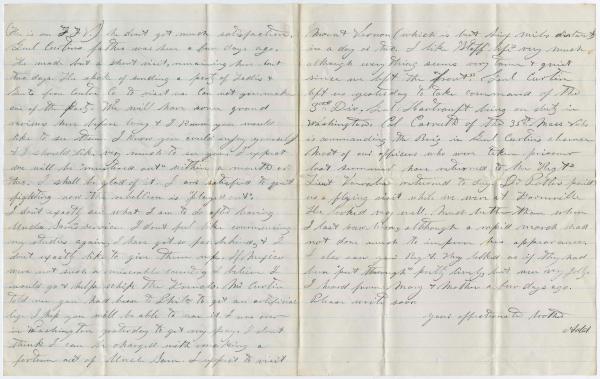 (He is an F.F.V.) he don't get much satisfaction.
Genl Curtins father was here a few days ago.
He made but a short visit, remaining here but
two days. He spoke of sending a party of Ladies &
Gents from Centre Co to visit us. Can not you make
one of the party. We will have some grand
reviews here before long & I know you would
like to see them. I know you could enjoy yourself
& I should like very much to see you. I expect
we will be "mustered out" within a month or
two. I shall be glad of it. I am satisfied to quit
fighting now the rebellion is "played out".
I don't exactly see what I am to do after leaving
Uncle Sam's service. I don't feel like commencing
my studies again, I have got so far behind, & I
don't exactly like to give them up. If Mexico
were not such a miserable country I believe I
would go & help whip the French. Mr Curtin
told me you had been to Phila to get an artificial
leg. I hope you will be able to use it. I was over
in Washington yesterday to get my pay. I don't
think I can be charged with making a
fortune out of Uncle Sam. I expect to visit
Mount Vernon (which is but miles distant)
in a day or two. I like Staff life very much
although every thing seems very tame & quiet
since we left the "front". Genl Curtin
left us yesterday to take command of the
3rd Div. Genl Hartranft being on duty in
Washington. Col Carruth of the 35th Mass Vols
is commanding the Brig in Genl Curtins absence
Most of our officers who were taken prisoner
last summer have returned to the Regt
Lieut returned to day. Dr Potter paid
us a flying visit while we were at Farmville
He looked very well. Much better than when
I last saw him, although a rapid march had
not done much to improve his appearances
I also saw your Regt & they looked as if they had
been "put through" pretty lively but were very jolly.
I heard from Mary & Mother a few days ago.
Please write soon
Your affectionate brother